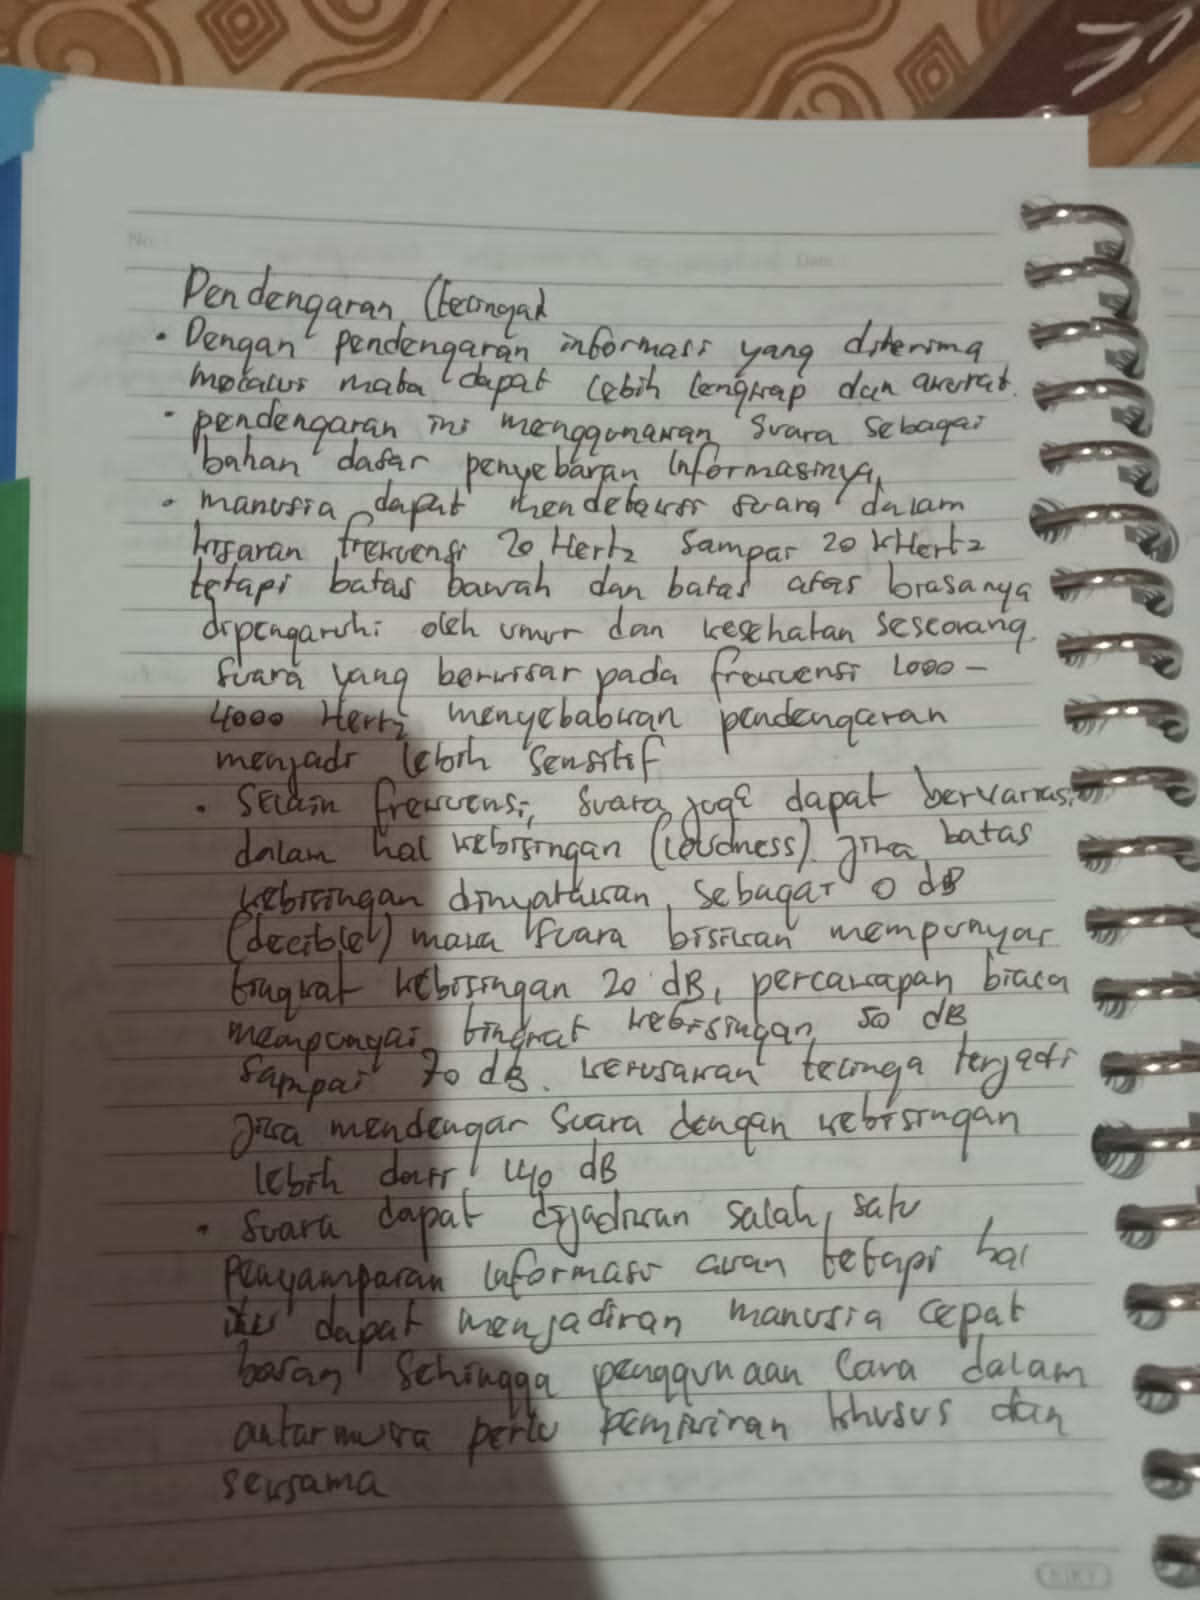 No :
Date :
Pendengaran (telinga)
• Dengan pendengaran informasi yang diterima
melalui mata dapat lebih lengkap dan akurat.
• pendengaran ini menggunakan suara sebagai
bahan dasar penyebaran informasinya.
• manusia dapat mendeteksi suara dalam
kisaran frekuensi 20 Hertz sampai 20 kHertz
tetapi batas bawah dan batas atas biasanya
dipengaruhi oleh umur dan kesehatan seseorang.
Suara yang berkisar pada frekuensi 1000 –
4000 Hertz menyebabkan pendengaran
menjadi lebih sensitif
• Selain frekuensi, suara juga dapat bervariasi
dalam hal kebisingan (loudness). jika batas
kebisingan dinyatakan sebagai 0 dB
(decible) maka suara bisikan mempunyai
tingkat kebisingan 20 dB, percakapan biasa
mempunyai tingkat kebisingan 50 dB
sampai 70 dB. kerusakan telinga terjadi
jika mendengar suara dengan kebisingan
lebih dari 140 dB
• Suara dapat dijadikan salah satu
Penyampaian informasi akan tetapi hal
itu dapat menjadikan manusia cepat
bosan sehingga penggunaan cara dalam
antarmuka perlu pemikiran khusus dan
seksama
KIKY